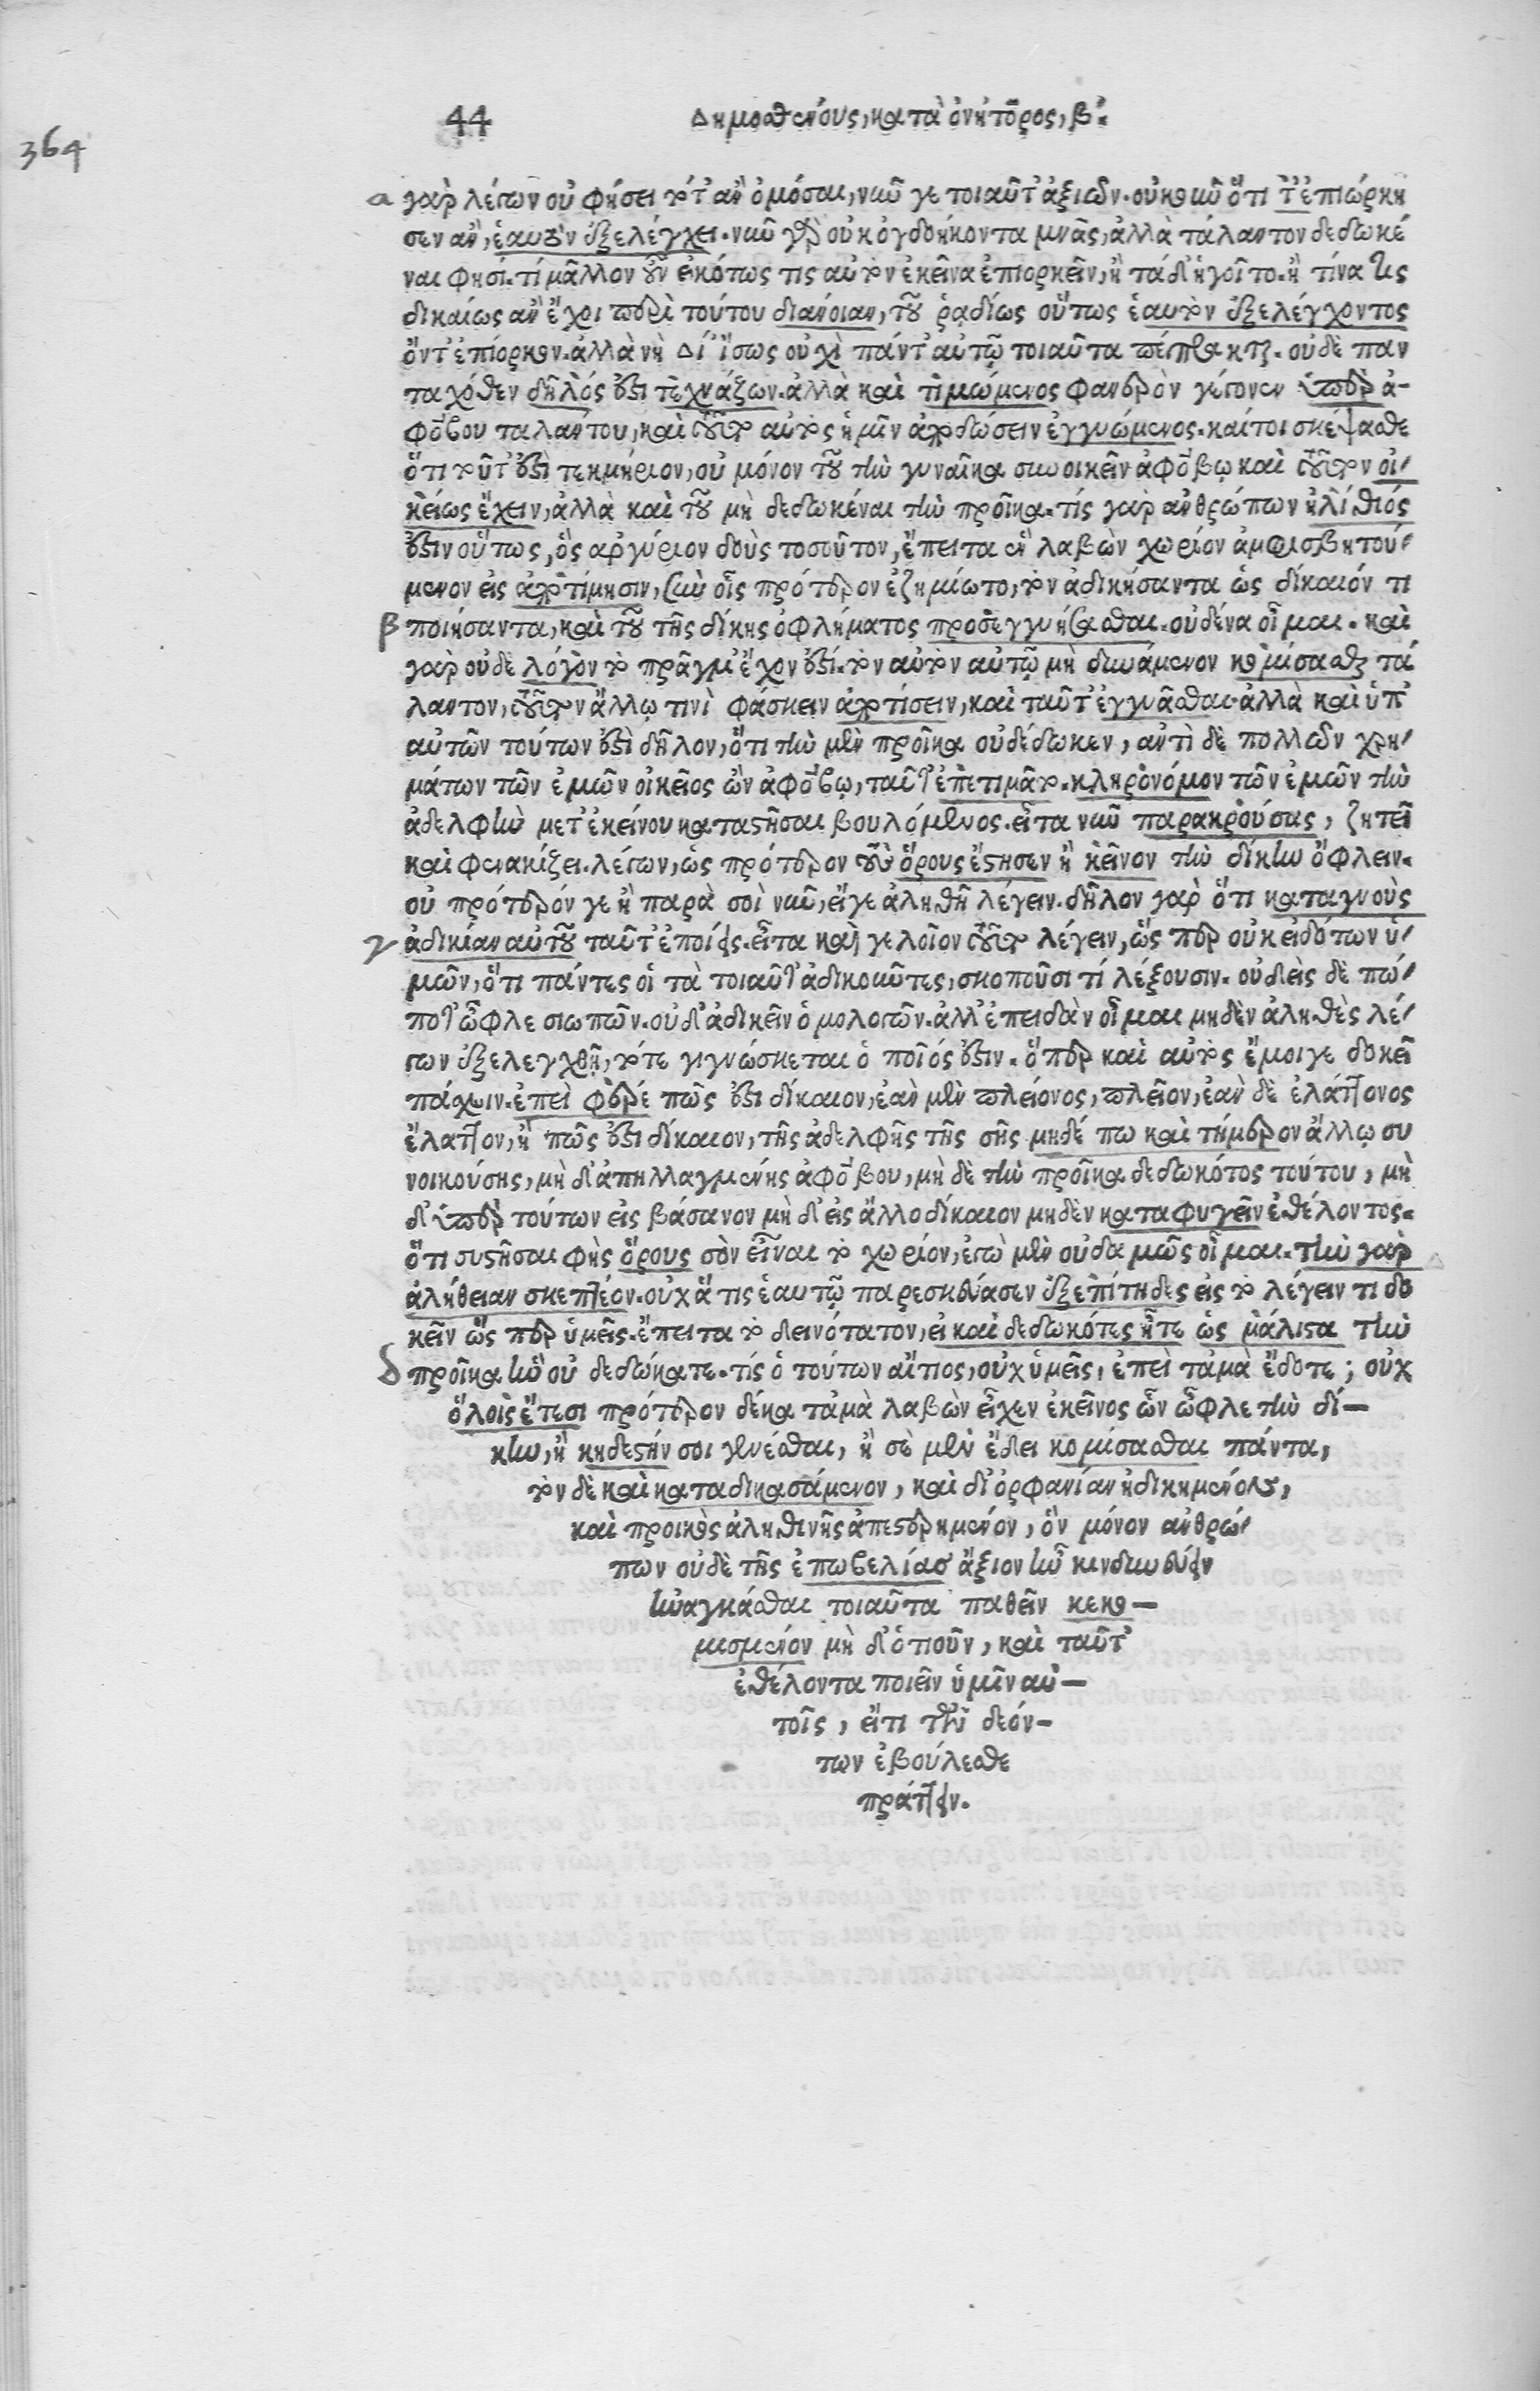 364
44 Δημοσθένους, κατὰ ὀνήτορος, β΄.
α γὰρ λέγων οὐ φήσει τότ' ἂν ὀμόσαι, νῦν γε τοιαῦτ' ἀξιῶν. οὐκοῦν ὅτι τότ' ἐπιώρκη
σεν ἂν, ἑαυτὸν ἐξελέγχει. νῦν γὰρ οὐκ ὀγδοήκοντα μνᾶς, ἀλλὰ τάλαντον δεδωκέ
ναι φησί. τί μᾶλλον οὖν εἰκότως τις αὐτὸν ἐκεῖνα ἐπιορκεῖν, ἢ τάδ' ἡγοῖτο. ἢ τίνα τις
δικαίως ἂν ἔχοι περὶ τούτου διάνοιαν, τοῦ ῥᾳδίως οὕτως ἑαυτὸν ἐξελέγχοντος
ὄντ' ἐπίορκον. ἀλλὰ νὴ Δί' ἴσως οὐχὶ πάντ' αὐτῷ τοιαῦτα πέπρακται. οὐδὲ παν
ταχόθεν δῆλός ἐστι τεχνάζων. ἀλλὰ καὶ τιμώμενος φανερὸν γέγονεν ὑπὲρ ἀ-
φόβου ταλάντου, καὶ τοῦτο αὐτὸς ἡμῖν ἀποδώσειν ἐγγυώμενος. καίτοι σκέψασθε
ὅτι τοῦτ' ἐστὶ τεκμήριον, οὐ μόνον τοῦ τὴν γυναῖκα συνοικεῖν ἀφόβῳ καὶ τοῦτον οἰ-
κείως ἔχειν, ἀλλὰ καὶ τοῦ μὴ δεδωκέναι τὴν προῖκα. τίς γὰρ ἀνθρώπων ἠλίθιός
ἐστιν οὕτως, ὃς ἀργύριον δοὺς τοσοῦτον, ἔπειτα ἓν λαβὼν χωρίον ἀμφισβητού-
μενον εἰς ἀποτίμησιν, σὺν οἷς πρότερον ἐζημίωτο, τὸν ἀδικήσαντα ὡς δίκαιόν τι
β ποιήσαντα, καὶ τοῦ τῆς δίκης ὀφλήματος προσεγγυήσασθαι. οὐδένα οἶμαι. καὶ
γὰρ οὐδὲ λόγον τὸ πρᾶγμ' ἔχον ἐστί. τὸν αὐτὸν αὐτῷ μὴ δυνάμενον κομίσασθαι τά
λαντον, τοῦτον ἄλλῳ τινὶ φάσκειν ἀποτίσειν, καὶ ταῦτ' ἐγγυᾶσθαι. ἀλλὰ καὶ ὑπ'
αὐτῶν τούτων ἐστὶ δῆλον, ὅτι τὴν μὲν προῖκα οὐ δέδωκεν, ἀντὶ δὲ πολλῶν χρη-
μάτων τῶν ἐμῶν οἰκεῖος ὢν ἀφόβῳ, ταῦτ' ἐπετιμᾶτο. κληρονόμον τῶν ἐμῶν τὴν
ἀδελφὴν μετ' ἐκείνου καταστῆσαι βουλόμενος. εἶτα νῦν παρακρούσας, ζητεῖ
καὶ φενακίζει. λέγων, ὡς πρότερον τοὺς ὅρους ἔστησεν ἢ κεῖνον τὴν δίκην ὄφλειν.
οὐ πρότερόν γε ἢ παρὰ σοὶ νῦν, εἴγε ἀληθῆ λέγειν. δῆλον γὰρ ὅτι καταγνοὺς
γ ἀδικίαν αὐτοῦ ταῦτ' ἐποίεις. εἶτα καὶ γελοῖον τοῦτο λέγειν, ὥς περ οὐκ εἰδότων ὑ-
μῶν, ὅτι πάντες οἱ τὰ τοιαῦτ' ἀδικοῦντες, σκοποῦσι τί λέξουσιν. οὐδεὶς δὲ πώ-
ποτ' ὦφλε σιωπῶν. οὐδ' ἀδικεῖν ὁμολογῶν. ἀλλ' ἐπειδὰν οἶμαι μηδὲν ἀληθὲς λέ-
γων ἐξελεγχθῇ, τότε γιγνώσκεται ὁ ποῖός ἐστιν. ὅπερ καὶ αὐτὸς ἔμοιγε δοκεῖ
πάσχειν. ἐπεὶ φέρε πῶς ἐστι δίκαιον, ἐὰν μὲν πλείονος, πλεῖον, ἐὰν δὲ ἐλάττονος
ἔλαττον, ἢ πῶς ἐστι δίκαιον, τῆς ἀδελφῆς τῆς σῆς μηδέ πω καὶ τήμερον ἄλλῳ συ
νοικούσης, μὴ δ' ἀπηλλαγμένης ἀφόβου, μὴ δὲ τὴν προῖκα δεδωκότος τούτου, μὴ
δ' ὑπὲρ τούτων εἰς βάσανον μὴ δ' εἰς ἄλλο δίκαιον μηδὲν καταφυγεῖν ἐθέλοντος.
ὅτι συστῆσαι φῂς ὅρους σὸν εἶναι τὸ χωρίον, ἐγὼ μὲν οὐδαμῶς οἶμαι. τὴν γὰρ
ἀλήθειαν σκεπτέον. οὐχ ἅ τις ἑαυτῷ παρεσκεύασεν ἐξεπίτηδες εἰς τὸ λέγειν τι δο
κεῖν ὥς περ ὑμεῖς. ἔπειτα τὸ δεινότατον, εἰ καὶ δεδωκότες ἦτε ὡς μάλιστα τὴν
δ προῖκα ἣν οὐ δεδώκατε. τίς ὁ τούτων αἴτιος, οὐχ ὑμεῖς, ἐπεὶ τἀμὰ ἔδοτε; οὐχ
ὅλοις ἔτεσι πρότερον δέκα τἀμὰ λαβὼν εἶχεν ἐκεῖνος ὧν ὦφλε τὴν δί-
κην, ἢ κηδεστήν σοι γενέσθαι, ἢ σὲ μὲν ἔδει κομίσασθαι πάντα,
τὸν δὲ καὶ καταδικασάμενον, καὶ δι' ὀρφανίαν ἠδικημένον,
καὶ προικὸς ἀληθινῆς ἀπεστερημένον, ὃν μόνον ἀνθρώ-
πων οὐδὲ τῆς ἐπωβελίας ἄξιον ἦν κινδυνεύειν
ἠναγκάσθαι τοιαῦτα παθεῖν κεκο-
μισμένον μὴ δ' ὁτιοῦν, καὶ ταῦτ'
ἐθέλοντα ποιεῖν ὑμῖν αὐ-
τοῖς, εἴ τι τῶν δεόν-
των ἐβούλεσθε
πράττειν.